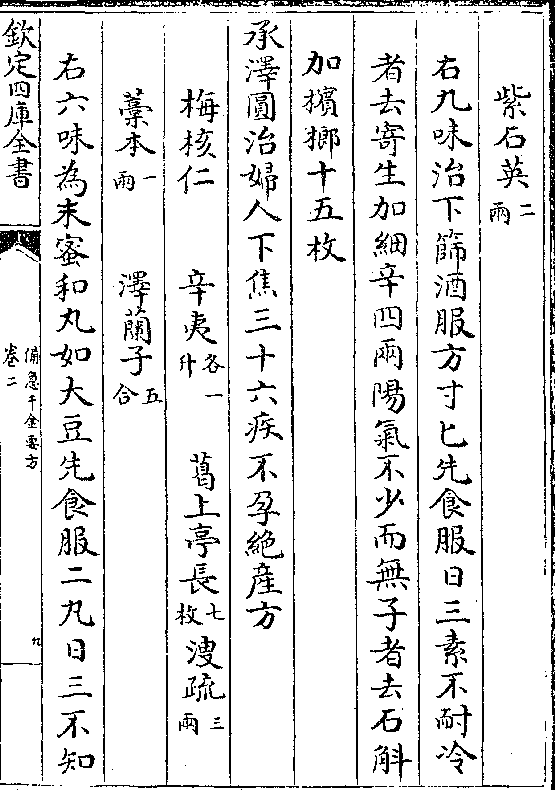 紫石英二兩
右九味治下篩酒服方寸匕先食服日三素不耐冷
者去寄生加細辛四兩陽氣不少而無子者去石斛
加擯榔十五枚
承澤圓治婦人下焦三十六疾不孕絶産方
梅核仁 辛夷各一升 葛上亭長七枚 溲疏三兩
藁本一兩 澤蘭子五合
右六味為末蜜和丸如大豆先食服二丸日三不知
欽定四庫全書
備急千金要方
卷二
九